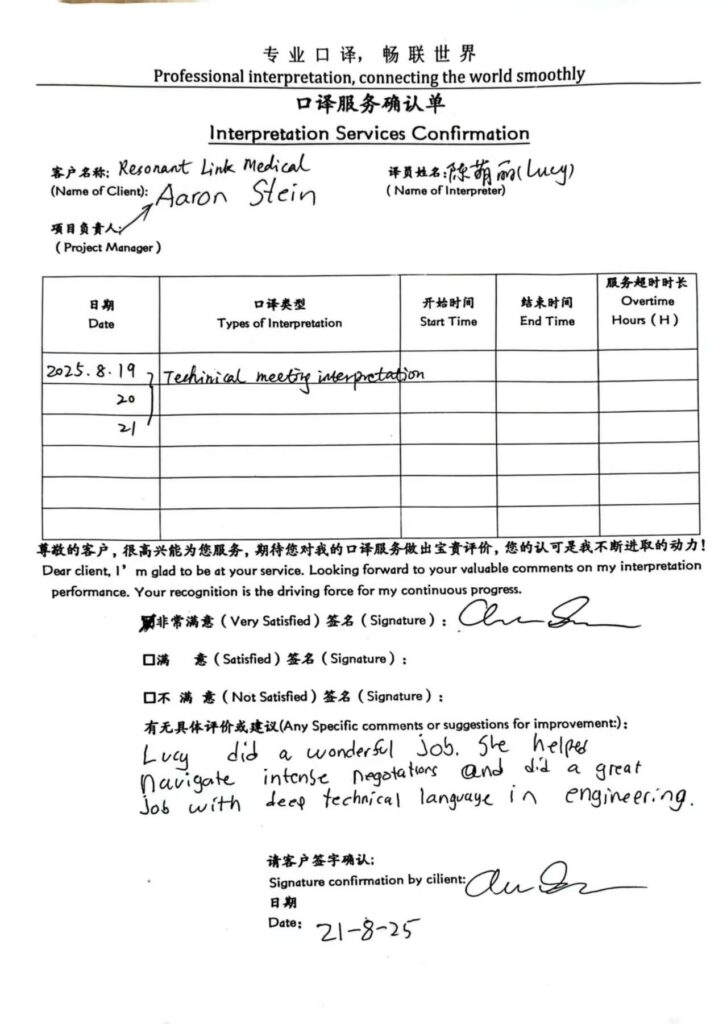 专业口译，畅联世界
Professional interpretation, connecting the world smoothly
口译服务确认单
Interpretation Services Confirmation
客户名称: Resonant Link Medical
(Name of Client): Aaron Stein
译员姓名: 陈萌丽(Lucy)
( Name of Interpreter)
项目负责人:
( Project Manager )
日期 口译类型 开始时间 结束时间 服务超时时长
Date Types of Interpretation Start Time End Time Overtime
Hours ( H )
2025.8.19 Techinical meeting interpretation
20
21
尊敬的客户，很高兴能为您服务，期待您对我的口译服务做出宝贵评价，您的认可是我不断进取的动力！
Dear client, I’m glad to be at your service. Looking forward to your valuable comments on my interpretation
performance. Your recognition is the driving force for my continuous progress.
非常满意 ( Very Satisfied ) 签名 ( Signature ) :
□满 意 ( Satisfied ) 签名 ( Signature ) :
□不 满 意 ( Not Satisfied ) 签名 ( Signature ) :
有无具体评价或建议(Any Specific comments or suggestions for improvement:) :
Lucy did a wonderful job. She helped
navigate intense negotations and did a great
job with deep technical language in engineering.
请客户签字确认:
Signature confirmation by cilient:
日期
Date: 21-8-25